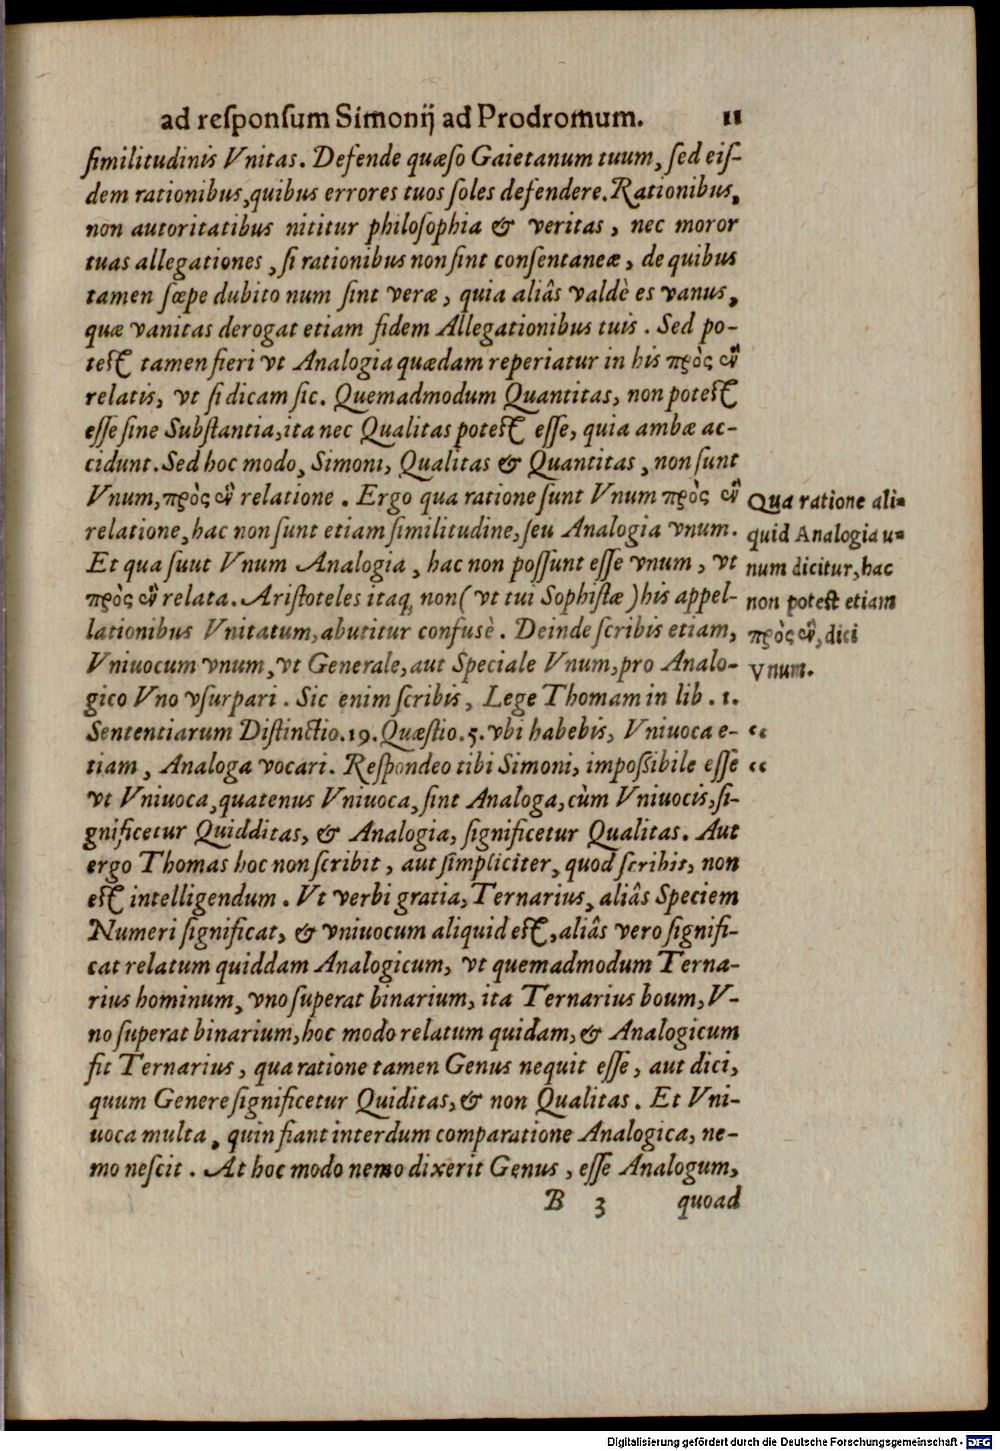 ad reſponſum Simonij ad Prodromum. 11
ſimilitudinis Vnitas. Defende quæſo Gaietanum tuum, ſed eiſ-
dem rationibus, quibus errores tuos ſoles defendere. Rationibus,
non autoritatibus nititur philoſophia & veritas, nec moror
tuas allegationes, ſi rationibus non ſint conſentaneæ, de quibus
tamen ſæpe dubito num ſint veræ, quia aliâs valdè es vanus,
quæ vanitas derogat etiam fidem Allegationibus tuis. Sed po-
teſt tamen fieri vt Analogia quædam reperiatur in his πρὸς ἓν
relatis, vt ſi dicam ſic. Quemadmodum Quantitas, non poteſt
eſſe ſine Subſtantia, ita nec Qualitas poteſt eſſe, quia ambæ ac-
cidunt. Sed hoc modo, Simoni, Qualitas & Quantitas, non ſunt
Vnum, πρὸς ἓν relatione. Ergo qua ratione ſunt Vnum πρὸς ἓν
relatione, hac non ſunt etiam ſimilitudine, ſeu Analogia vnum.
Et qua ſuut Vnum Analogia, hac non poſſunt eſſe vnum, vt
πρὸς ἓν relata. Ariſtoteles itaq; non (vt tui Sophiſtæ) his appel-
lationibus Vnitatum, abutitur confusè. Deinde ſcribis etiam,
Vniuocum vnum, vt Generale, aut Speciale Vnum, pro Analo-
gico Vno vſurpari. Sic enim ſcribis, Lege Thomam in lib. 1.
Sententiarum Diſtinctio. 19. Quæſtio. 5. vbi habebis, Vniuoca e-
tiam, Analoga vocari. Reſpondeo tibi Simoni, impoſſibile eſſe
vt Vniuoca, quatenus Vniuoca, ſint Analoga, cùm Vniuocis, ſi-
gnificetur Quidditas, & Analogia, ſignificetur Qualitas. Aut
ergo Thomas hoc non ſcribit, aut ſimpliciter, quod ſcribit, non
eſt intelligendum. Vt verbi gratia, Ternarius, aliâs Speciem
Numeri ſignificat, & vniuocum aliquid eſt, aliâs vero ſignifi-
cat relatum quiddam Analogicum, vt quemadmodum Terna-
rius hominum, vno ſuperat binarium, ita Ternarius boum, V-
no ſuperat binarium, hoc modo relatum quidam, & Analogicum
fit Ternarius, qua ratione tamen Genus nequit eſſe, aut dici,
quum Genere ſignificetur Quiditas, & non Qualitas. Et Vni-
uoca multa, quin fiant interdum comparatione Analogica, ne-
mo neſcit. At hoc modo nemo dixerit Genus, eſſe Analogum,
B 3 quoad
Qua ratione ali-
quid Analogia u-
num dicitur, hac
non poteſt etiam
πρὸς ἓν, dici
Vnum.
“
“
Digitalisierung gefördert durch die Deutsche Forschungsgemeinschaft - DFG